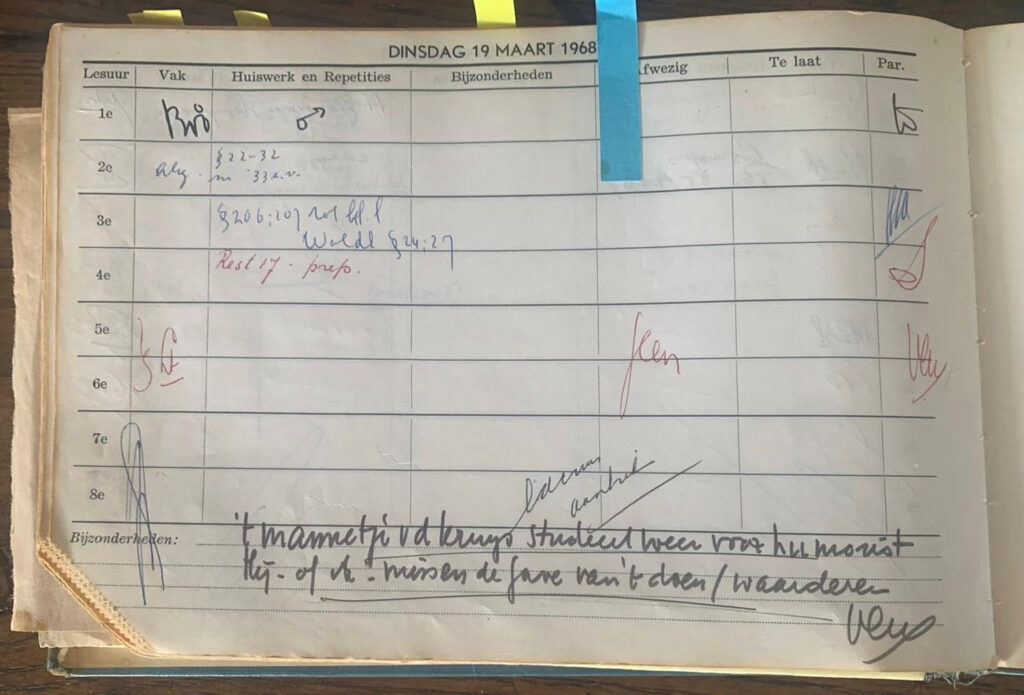 DINSDAG 19 MAART 1968
Lesuur Vak Huiswerk en Repetities Bijzonderheden fwezig Te laat Par.
1e
2e Alg. § 22-32
m '33 e.v.
3e § 206; 207
§ 24; 27
4e Rest 17 - prep.
5e geen
6e
7e
8e
Bijzonderheden: 't mannetje v d kruys studeert weer voor humorist
Hij - of ik - missen de gave van 't doen / waarderen